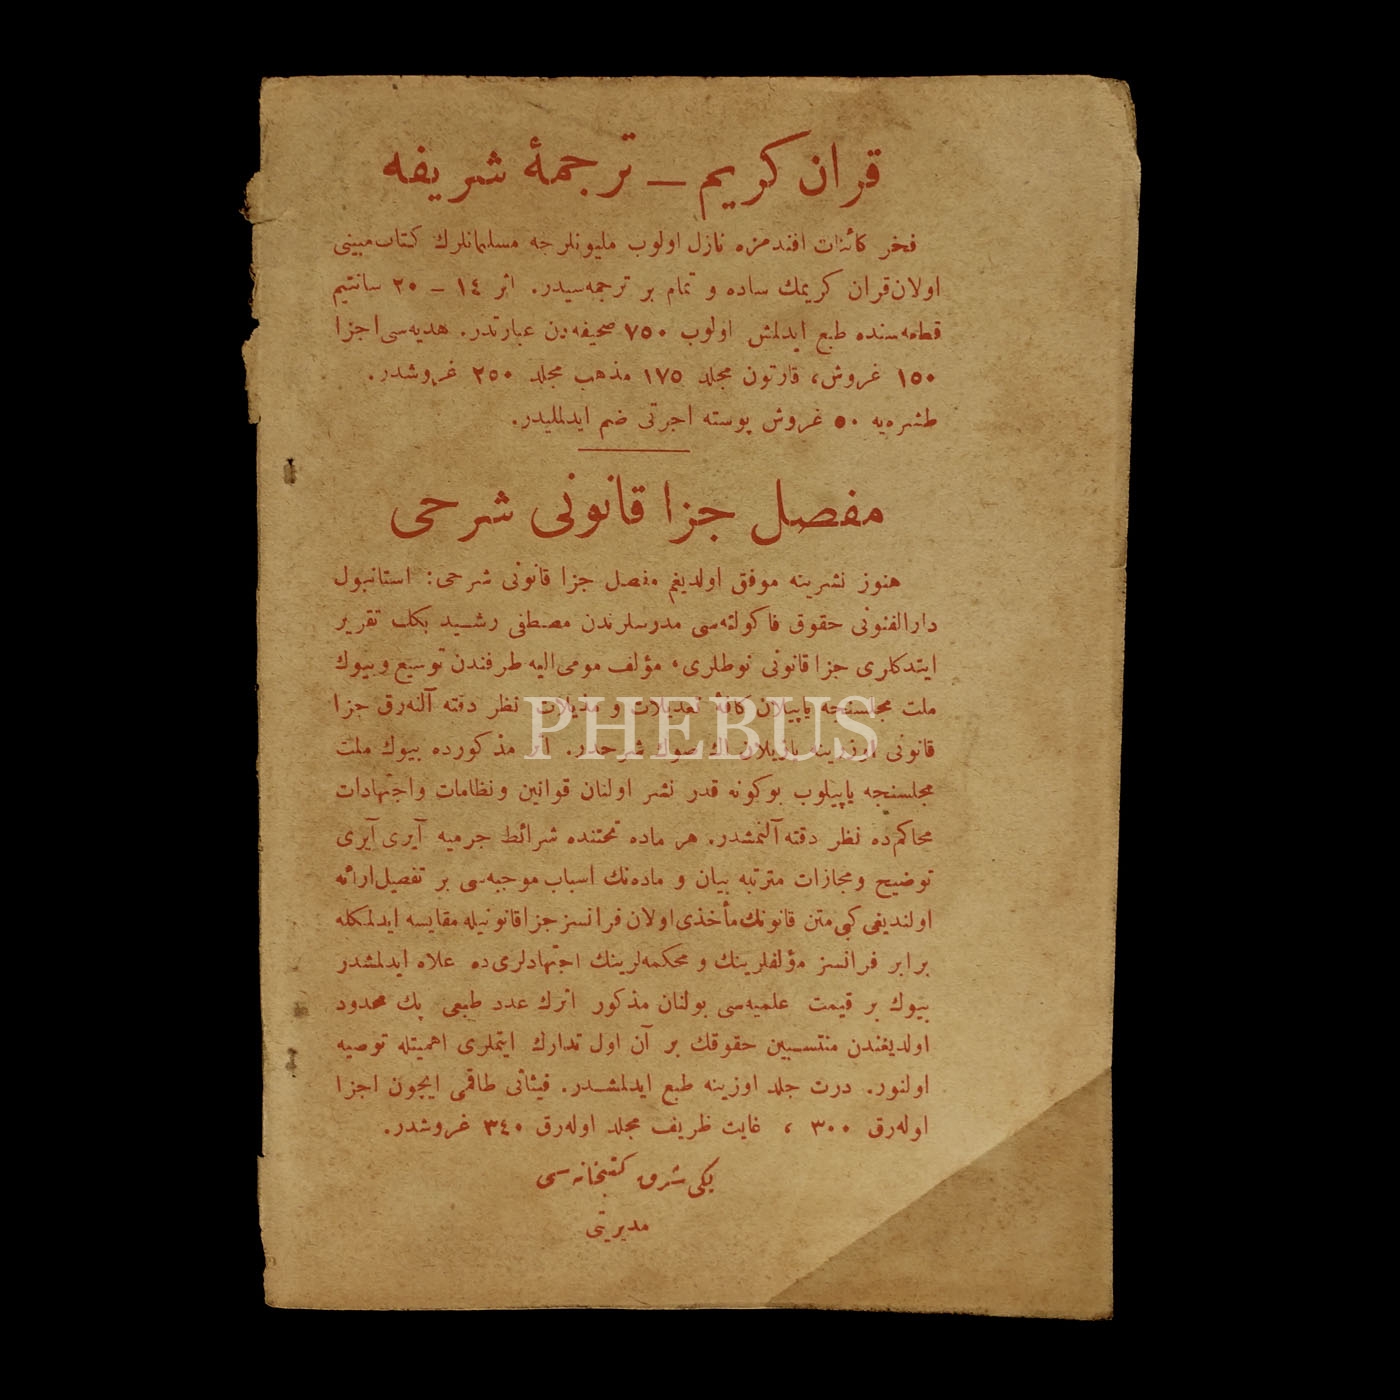 قران كريم — ترجمهٔ شريفه
فخر كائنات افندمزه نازل اولوب مليونلرجه مسلمانلرك كتاب مبينى
اولان قران كريمك ساده و تمام بر ترجمه‌سيدر. اثر ١٤ — ٢٠ سانتيم
قطعه‌سنده طبع ايدلمش اولوب ٧٥٠ صحيفه‌دن عبارتدر. هديه‌سى اجزا
١٥٠ غروش، قارتون مجلد ١٧٥ مذهب مجلد ٢٥٠ غروشدر.
طشره‌يه ٥٠ غروش پوسته اجرتى ضم ايدلمليدر.
مفصل جزا قانونى شرحى
هنوز نشرينه موفق اولديغم مفصل جزا قانونى شرحى: استانبول
دارالفنونى حقوق فاكولته‌سى مدرسلرندن مصطفى رشيد بكك تقرير
ايتدكلرى جزا قانونى نوطلرى، مؤلف مومى اليه طرفندن توسيع و بيوك
ملت مجلسنجه ياپيلان كافهٔ تعديلات و مذيلات نظر دقته آلنه‌رق جزا
قانونى اوزرينه يازيلان اك صوك شرحدر. اثر مذكورده بيوك ملت
مجلسنجه ياپيلوب بوكونه قدر نشر اولنان قوانين و نظامات و اجتهادات
محاكم‌ده نظر دقته آلنمشدر. هر ماده تحتنده شرائط جرميه آيرى آيرى
توضيح و مجازات مترتبه بيان و ماده‌نك اسباب موجبه‌سى بر تفصيل ارائه
اولنديغى كبى متن قانونك مأخذى اولان فرانسز جزا قانونيله مقايسه ايدلمكله
برابر فرانسز مؤلفلرينك و محكمه‌لرينك اجتهادلرى‌ده علاوه ايدلمشدر
بيوك بر قيمت علميه‌سى بولنان مذكور اثرك عدد طبعى پك محدود
اولديغندن منتسبين حقوقك بر آن اول تدارك ايتملرى اهميتله توصيه
اولنور. درت جلد اوزينه طبع ايدلمشدر. فيئاتى طاقمى ايچون اجزا
اوله‌رق ٣٠٠ ، غايت ظريف مجلد اوله‌رق ٣٤٠ غروشدر.
يكى شرق كتبخانه‌سى
مديريتى
PHEBUS